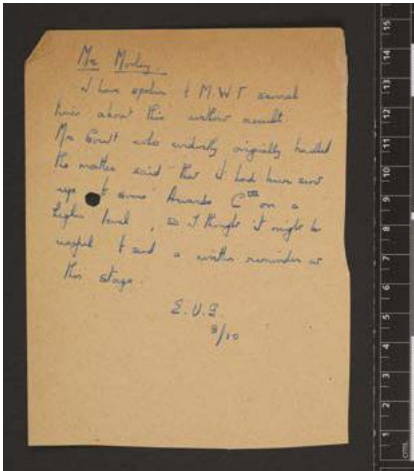 Mr Morley.
I have spoken to M.W.T. several
times about this without result
Mr Grant who evidently originally handled
the matter said that it had been sent
up to some Awards Cttee on a
higher level, so I thought it might be
useful to send a written reminder at
this stage.
E.U.B.
8/10